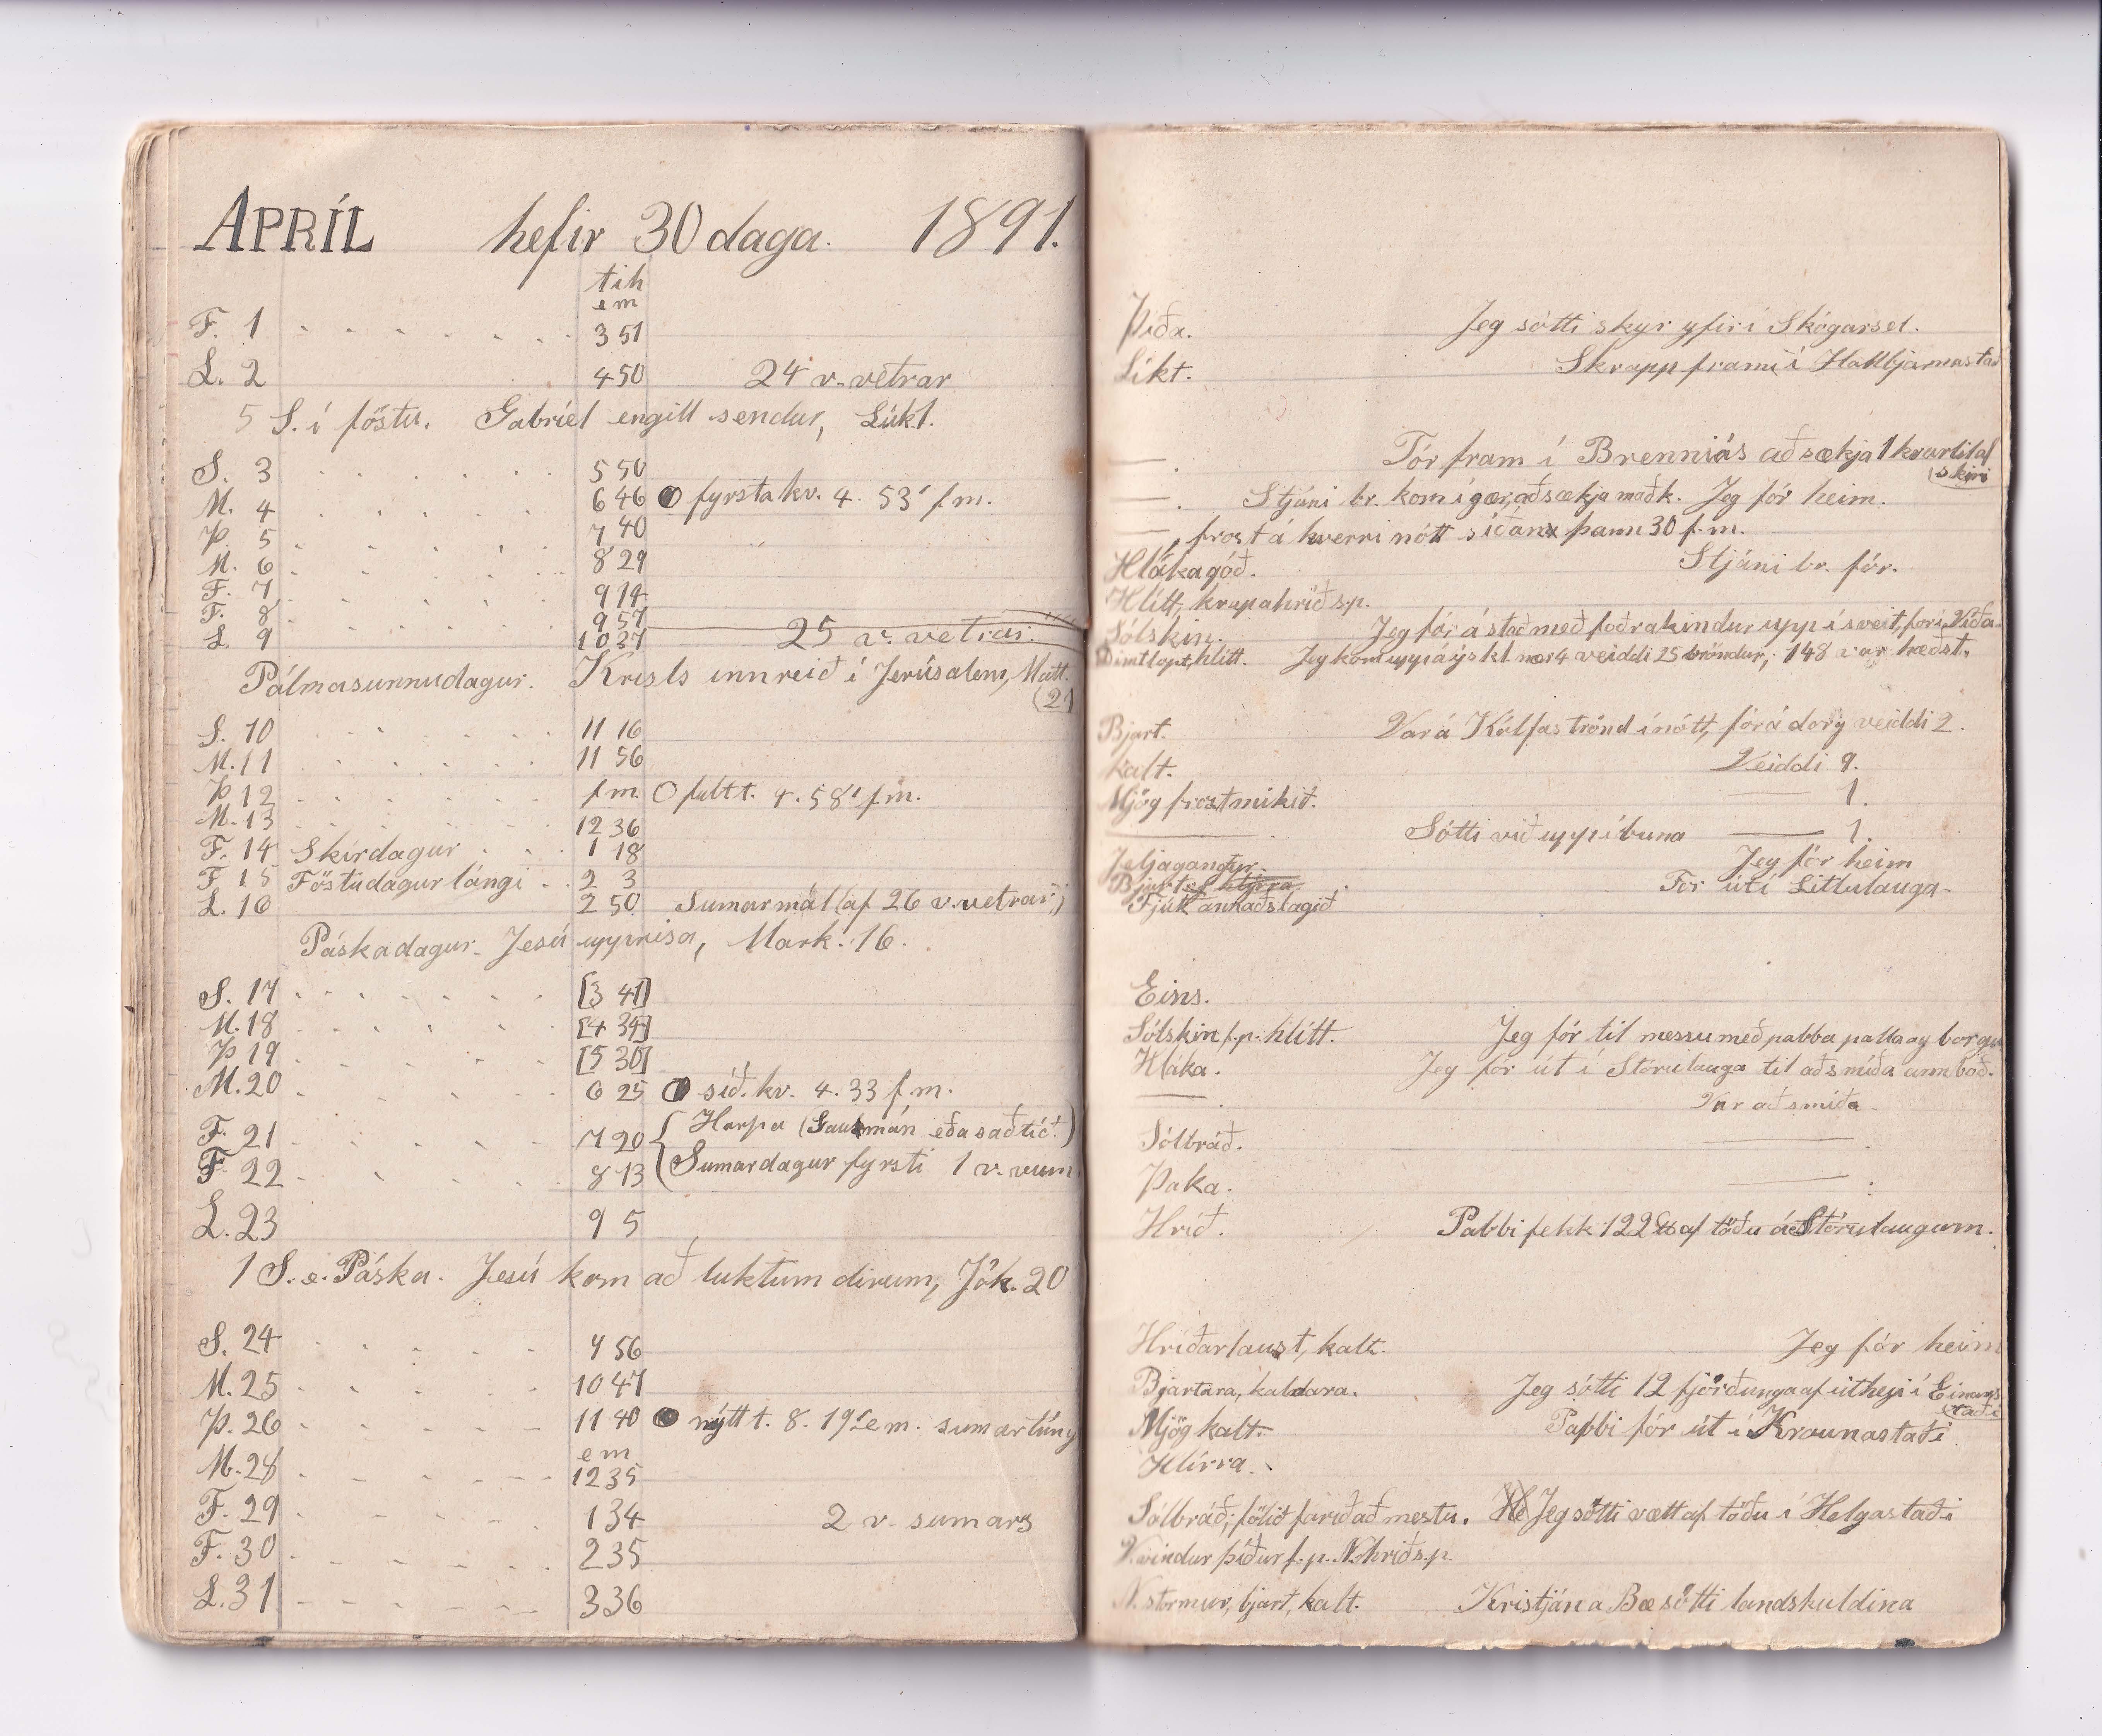 APRÍL hefir 30 daga. 1891.
tih
em
F. 1 3 51
L. 2 4 50 24 v. vetrar
5 S. í föstu. Gabríel engill sendur, Lúk 1.
S. 3 5 50
M. 4 6 46 fyrsta kv. 4. 53' f m.
Þ. 5 7 40
M. 6 8 29
F. 7 9 14
F. 8 9 57
L. 9 10 37 25 v. vetrar.
Pálmasunnudagur. Krists innreið í Jerúsalem, Matt.
(21
S. 10 11 16
M. 11 11 56
Þ 12 f m fullt t. 4. 58' f m.
M. 13 12 36
F. 14 Skírdagur 1 18
F. 15 Föstudagur lángi 2 3
L. 16 2 50 Sumarmál (af 26 v. vetrar;)
Páskadagur. Jesú upprisa, Mark. 16.
S. 17 [3 41]
M. 18 [4 34]
Þ 19 [5 30]
M. 20 6 25 síð. kv. 4. 33 f m.
F. 21 7 20 Harpa (Gaukmán eða saðtíð.)
F 22 8 13 Sumardagur fyrsti 1 v. sum
L. 23 9 5
1 S. e. Páska. Jesú kom að luktum dirum, Jóh. 20
S. 24 9 56
M. 25 10 47
Þ. 26 11 40 nýtt t. 8. 19' e m. sumartúng
e m
M. 28 12 35
F. 29 1 34 2 v. sumars
F. 30 2 35
L. 31 3 36
Þíða. Jeg sótti skyr yfir í Skógarsel.
Líkt. Skrapp fram í Hallbjarnastaði
— . Fór fram í Brenniás að sækja 1 kvartil af
(skiri
— . Stjáni br. kom í gær, að sækja maðk. Jeg fór heim.
— , frost á hverri nótt síðan þann 30 f. m.
Hláka góð. Stjáni br. fór.
Hlítt, krapahríð s.p.
Sólskin. Jeg fór á stað með foðrakindur upp í sveit, fór í Víða-
Dimt lopt, hlítt. Jeg kom upp á ýs kl. 4 veiddi 25 bröndur, 148 var hæðst.
Bjart. Var á Kálfaströnd í nótt, fór á dorg veiddi 2.
kalt. Veiddi 9.
Mjög frostmikið. — 1.
— . Sótti við upp í buna — 1.
Jeljagangur. Jeg fór heim
Bjart og hlírra. Fór út í Litlulauga-
Fjúk annað slagið
Eins.
Sólskin f.p. hlítt. Jeg fór til messu með pabba palla og borgu
Hláka. Jeg fór út í Stórulauga til að smíða ann boð.
— . Var að smíða.
Sólbráð. —
Þaka. — .
Hríð. Pabbi fekk 122 ℔ af töðu á Stórulaugum.
Hríðarlaust, kalt. Jeg fór heim
Bjartara, kaldara. Jeg sótti 12 fjórðunga af útheji í Einars
staði
Mjög kalt. Pabbi fór út í Kraunastaði
Hlírra.
Sólbráð; fölið farið að mestu. Jeg sótti vætt af töðu í Helgastaði
V. vindur þíður f.p. N. hríð s.p.
N. stormur, bjart, kalt. Kristján a Bæ sótti landskuldina